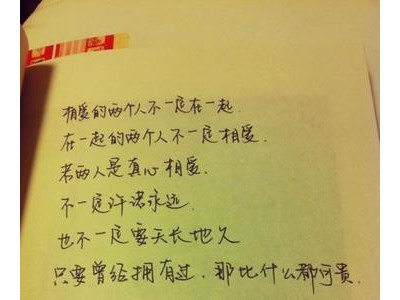 相爱的两个人不一定在一起.
在一起的两个人不一定相爱.
若两人是真心相爱.
不一定许诺永远.
也不一定要天长地久
只要曾经拥有过.那比什么都可贵.